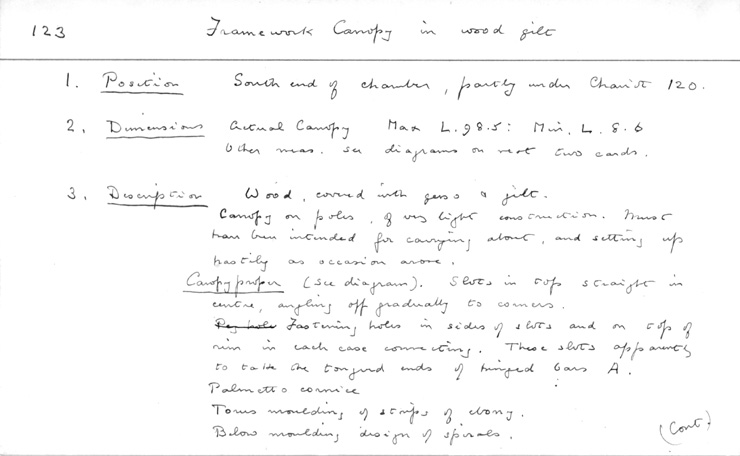 123 Framework Canopy in wood gilt
1. Position South end of chamber, partly under Chariot 120.
2. Dimensions Actual Canopy Max L. 98.5: Min. L. 8.6
Other meas. see diagrams on next two cards.
3. Description Wood, covered with gesso & gilt.
Canopy on poles, of very light construction. Must
have been intended for carrying about, and setting up
hastily as occasion arose.
Canopy proper (see diagram). Slots in top straight in
centre, angling off gradually to corners.
Peg hole Fastening holes in sides of slots and on top of
rim in each case connecting. These slots apparently
to take the tongued ends of hinged bars A.
Palmetto cornice
Torus moulding of strips of ebony.
Below moulding design of spirals.
(Cont.)